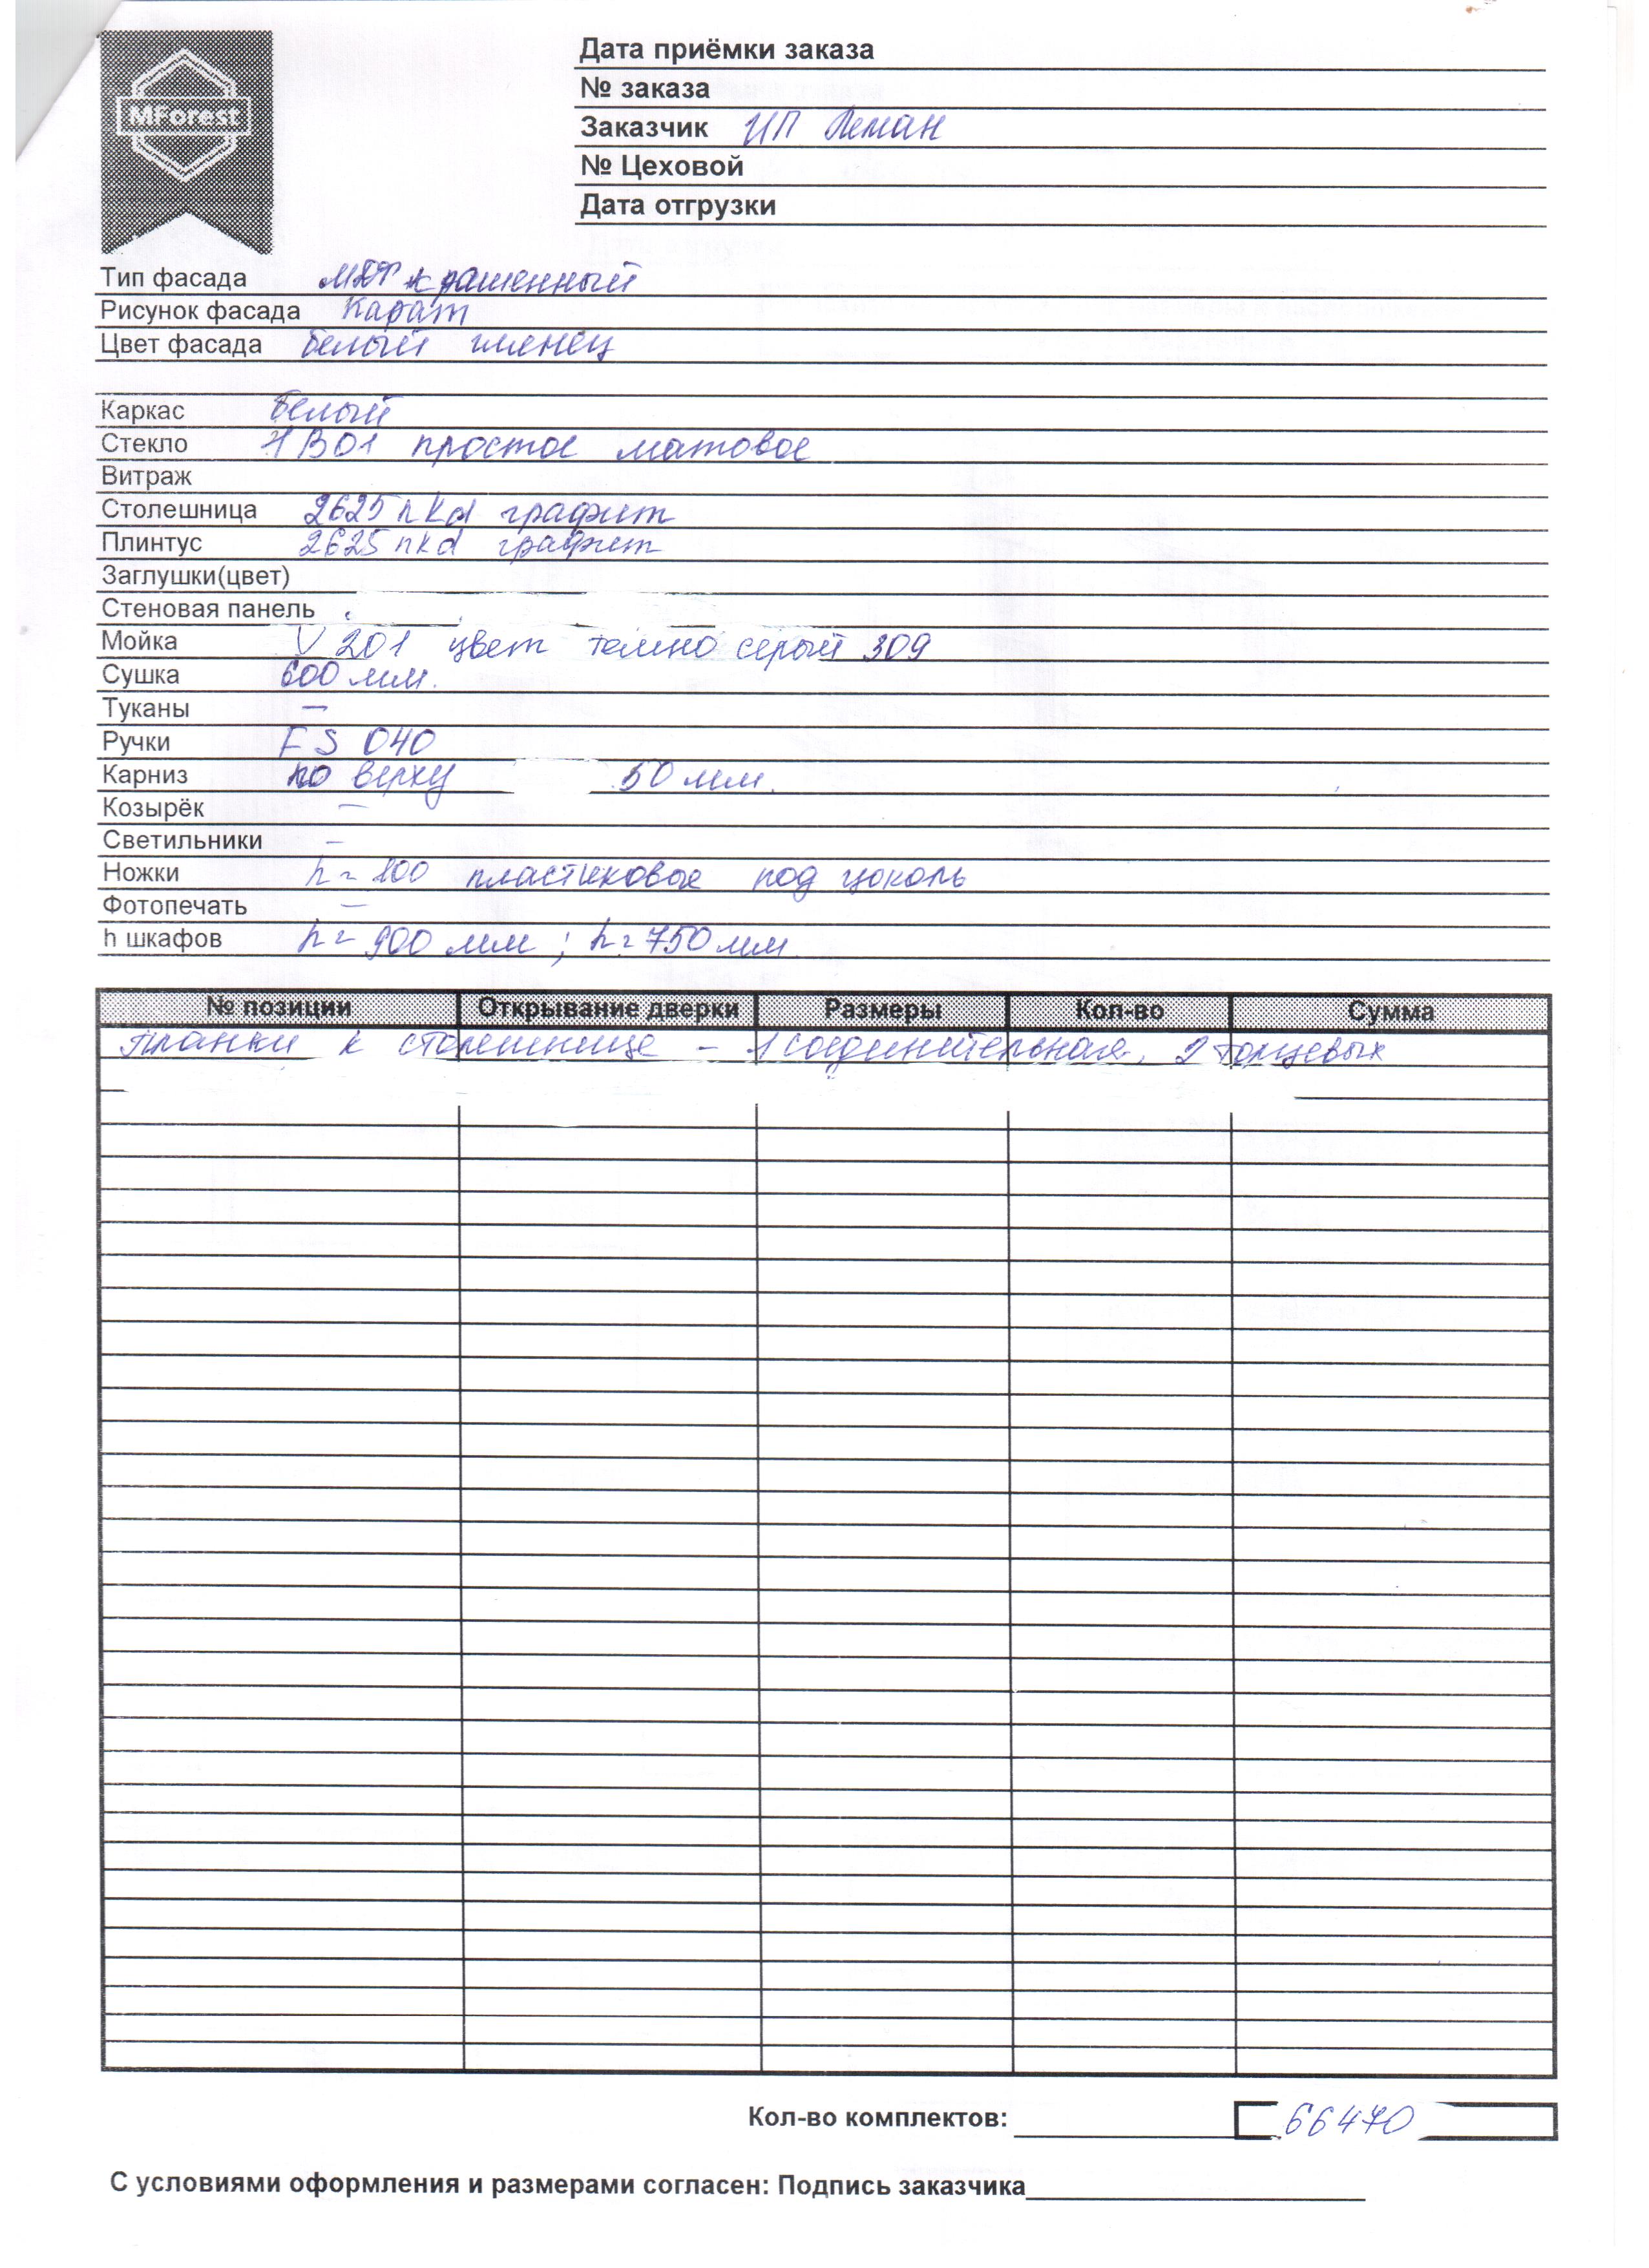 MForest
Дата приёмки заказа
№ заказа
Заказчик ИП Леман
№ Цеховой
Дата отгрузки
Тип фасада МДФ крашенный
Рисунок фасада Карат
Цвет фасада белый глянец
Каркас белый
Стекло 1В01 простое матовое
Витраж
Столешница 2625 nkd графит
Плинтус 2625 nkd графит
Заглушки(цвет)
Стеновая панель
Мойка V 201 цвет темно серый 309
Сушка 600 мм.
Туканы —
Ручки FS 040
Карниз по верху 50 мм.
Козырёк —
Светильники —
Ножки h = 100 пластиковые под цоколь
Фотопечать —
h шкафов h = 900 мм ; h = 750 мм
№ позиции Открывание дверки Размеры Кол-во Сумма
планки к столешнице - 1 соединительная, 2 торцевых
Кол-во комплектов: 66470
С условиями оформления и размерами согласен: Подпись заказчика